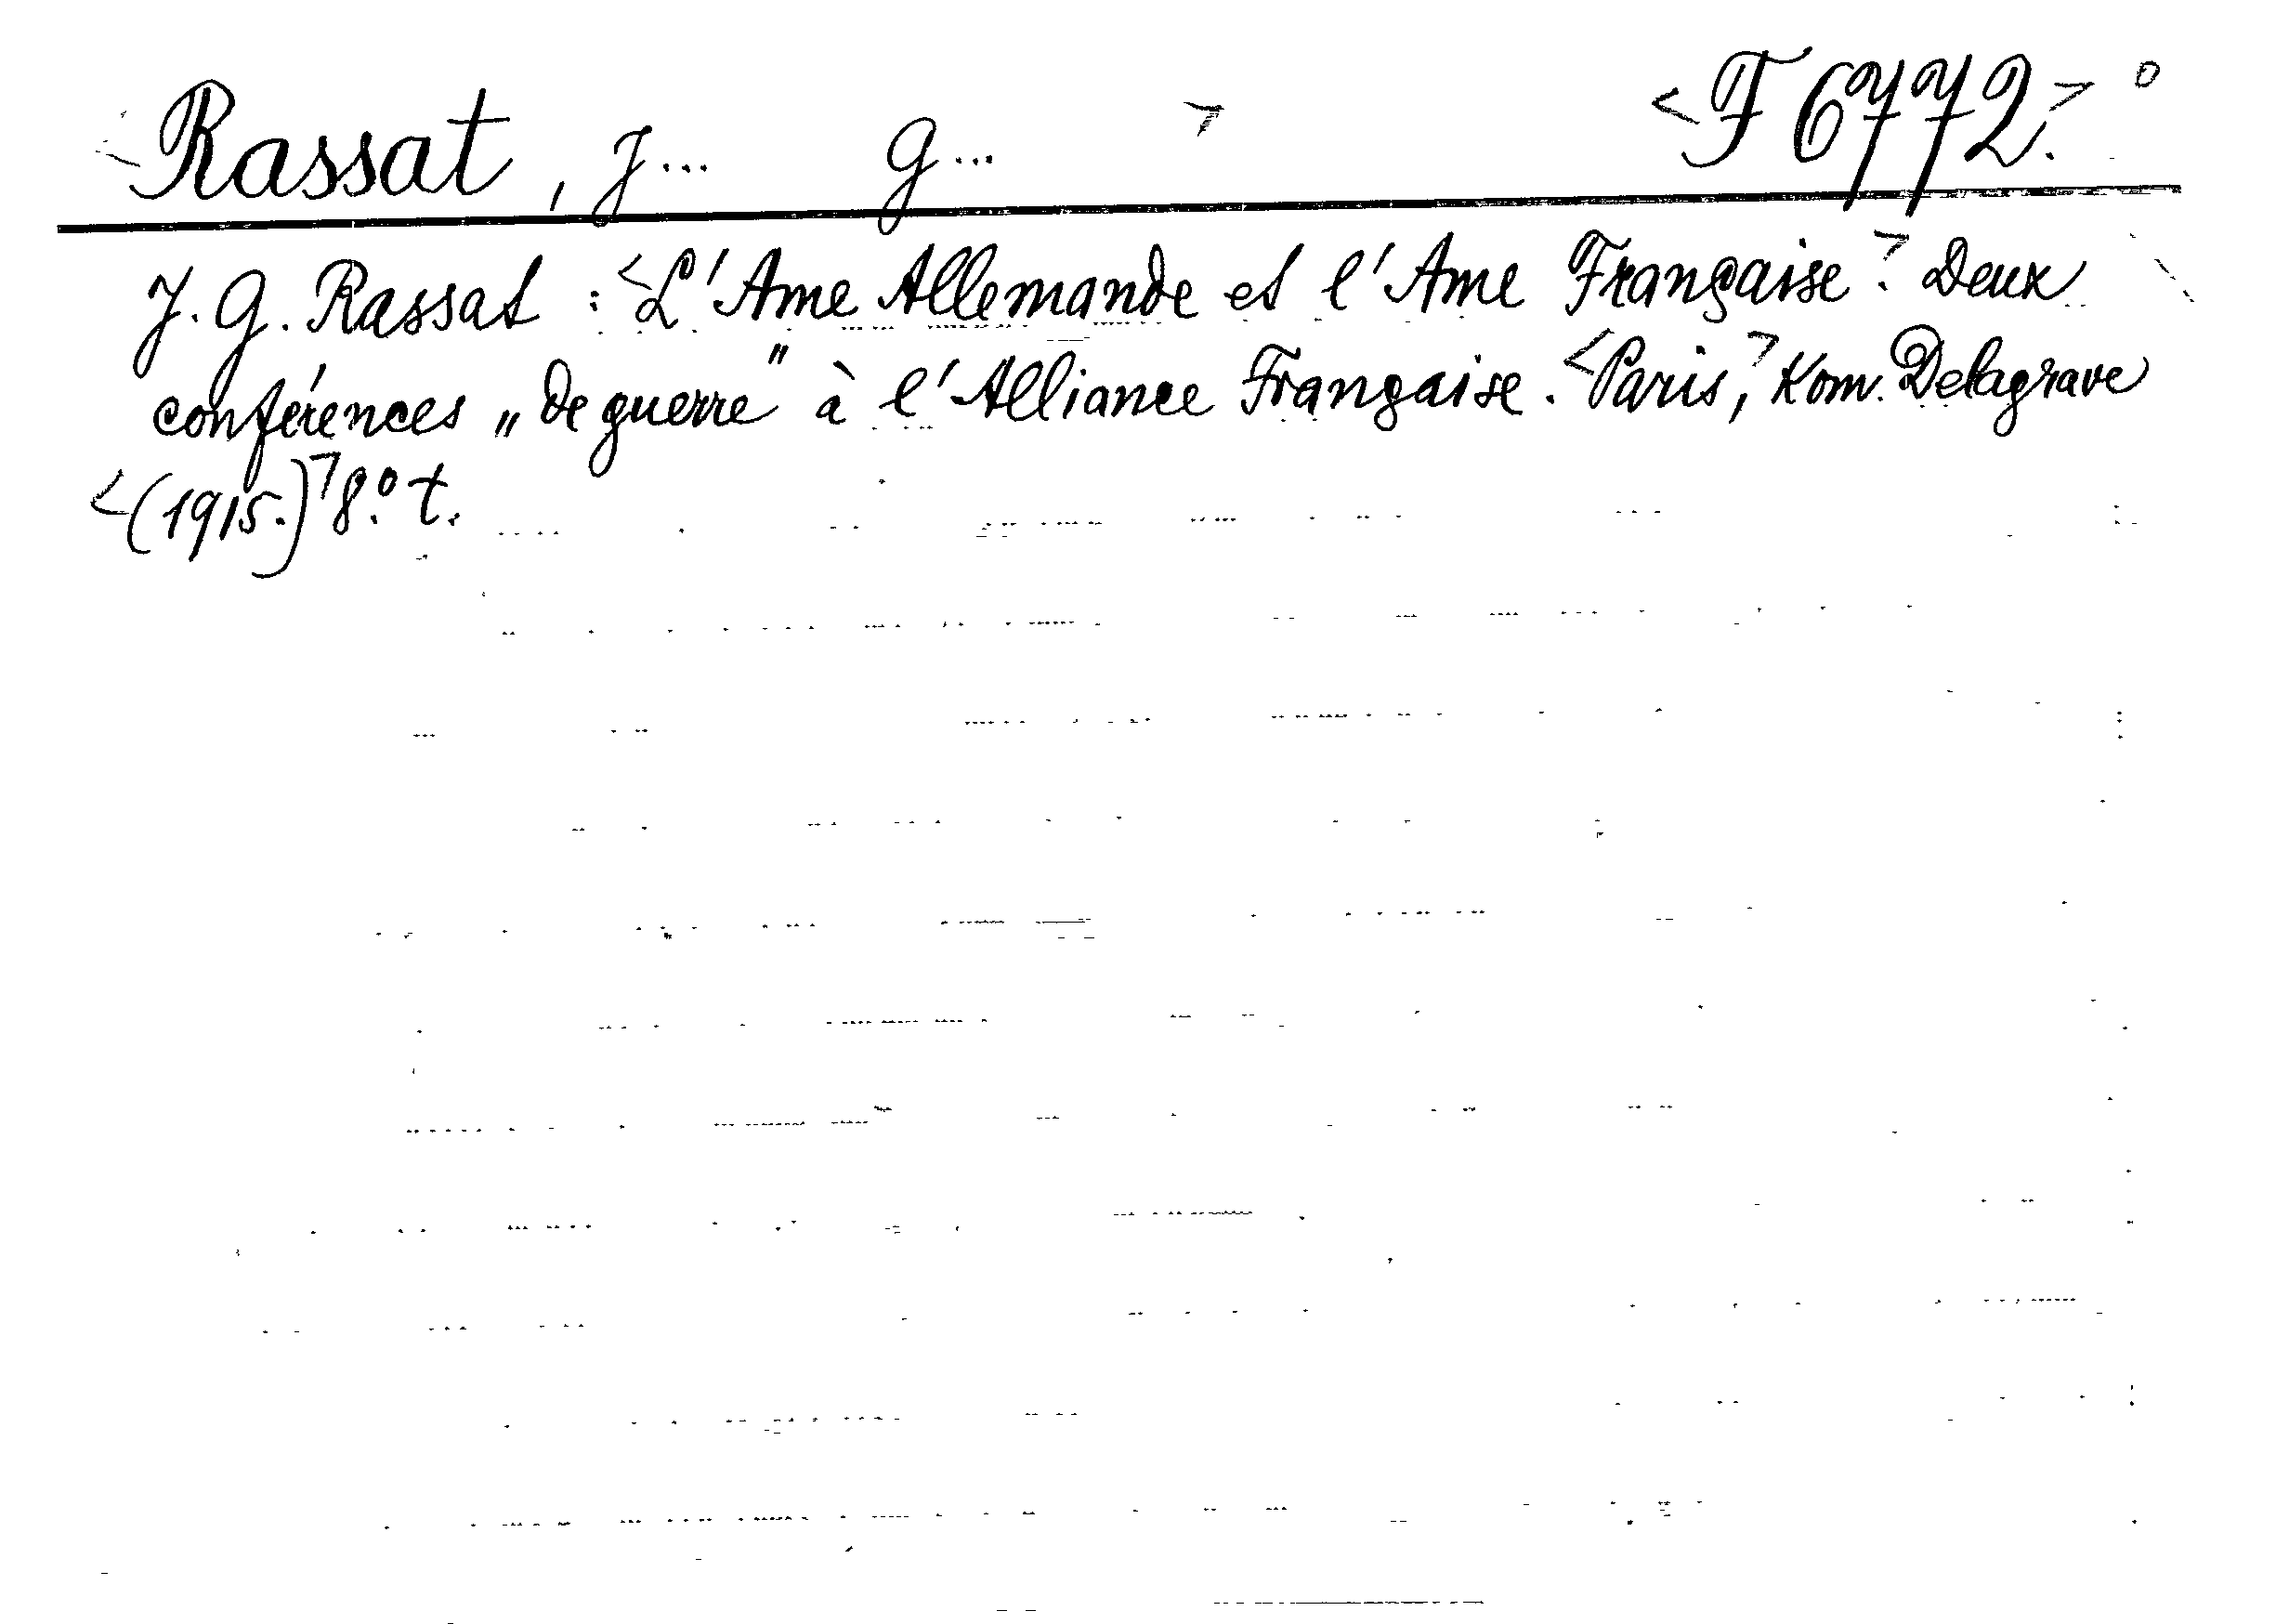 <Rassat, J... G...> <F 6772.> °
J. G. Rassat: <L'Ame Allemande et l'Ame Française>. Deux
conférences „de guerre" à l'Alliance Française. <Paris,> Kom. Delagrave
<(1915.)> 8.° t.